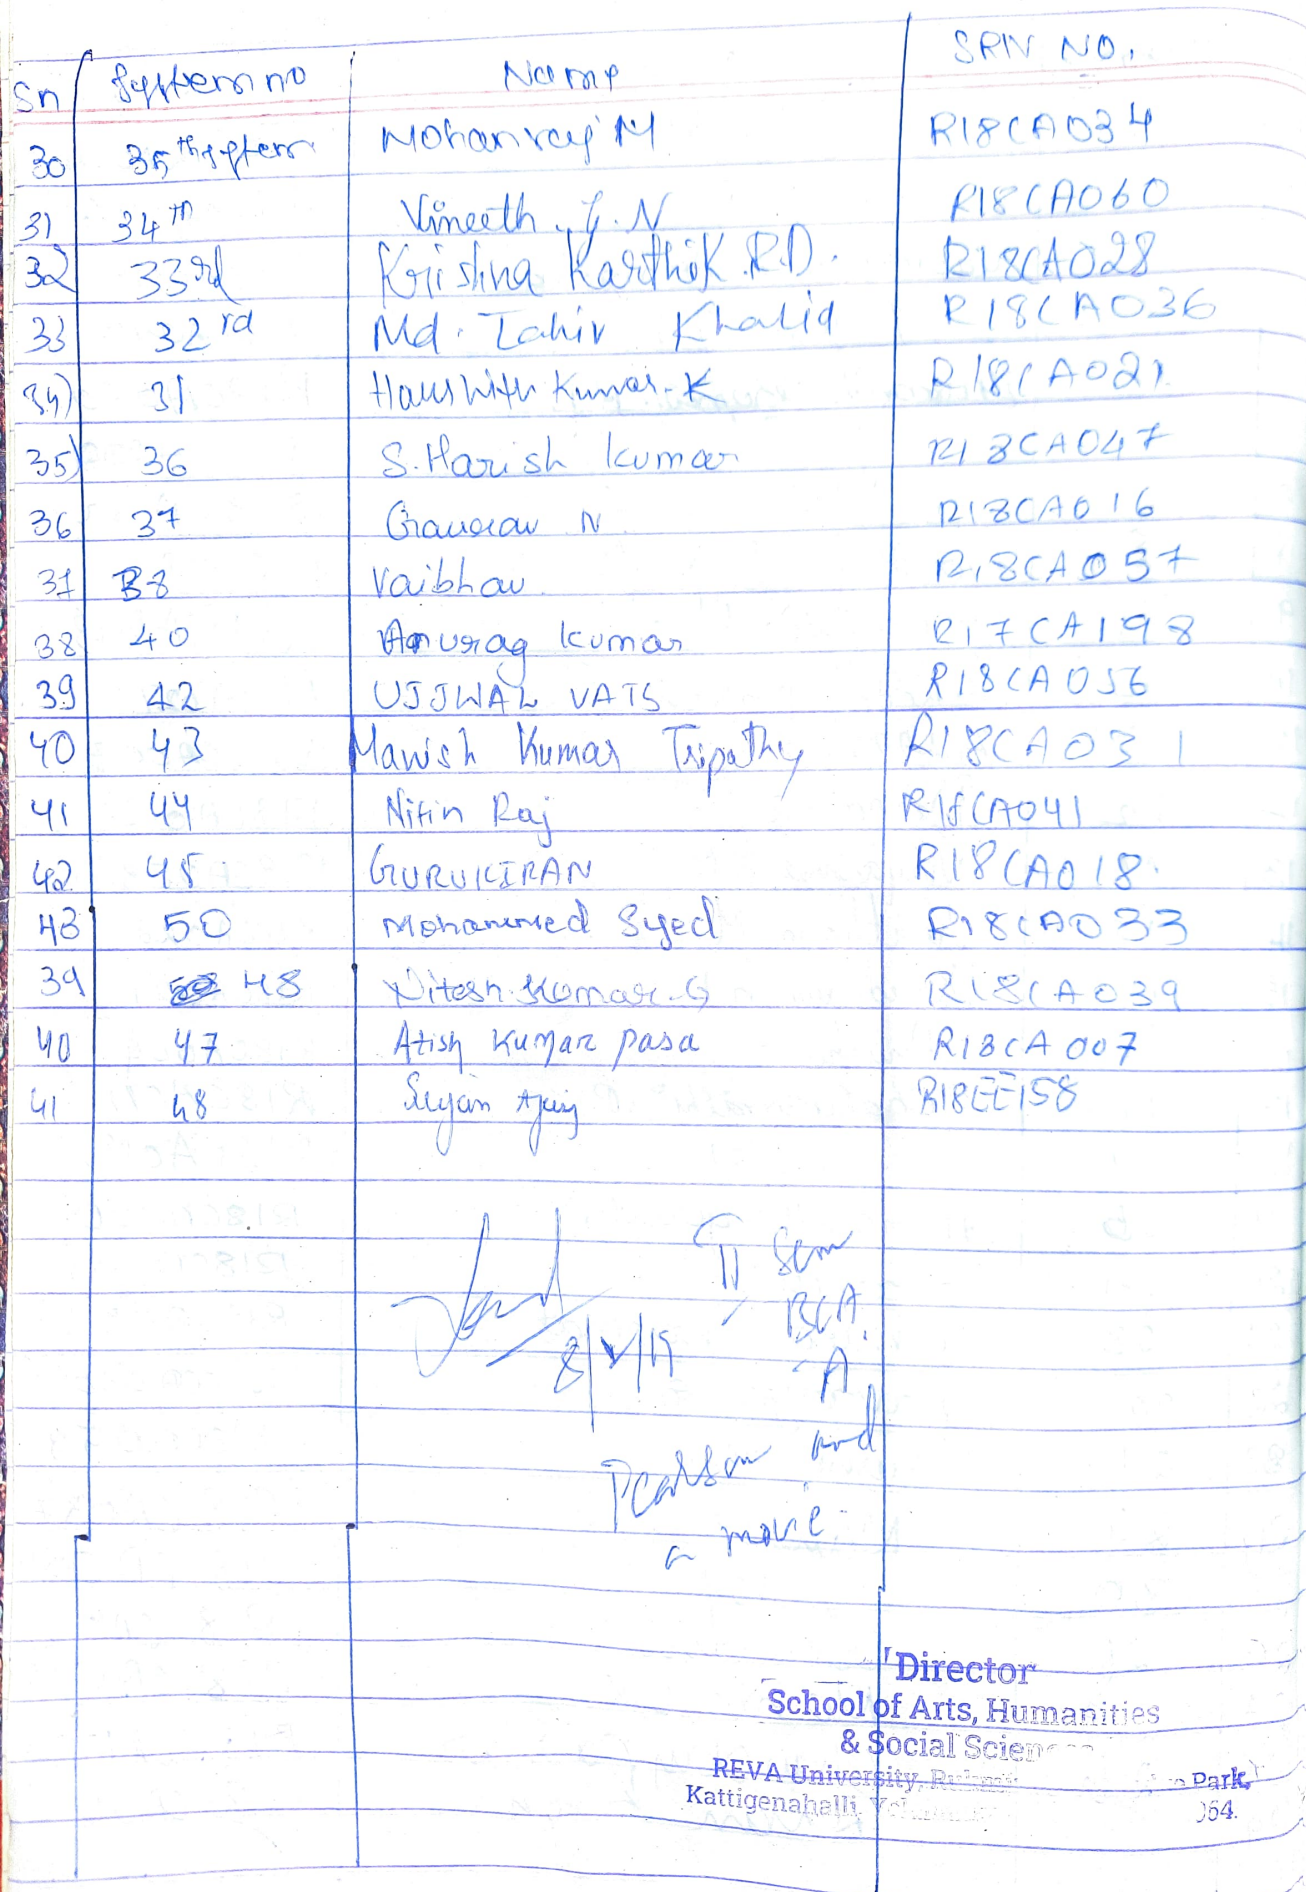 Sn System no Name SRN NO.
30 35th system Mohanraj M R18CA034
31 34th Vineeth . G. N R18CA060
32) 33rd Krishna Karthik R.D. R18CA028
33 32rd Md. Tahir Khalid R18CA036
34) 31 Harshith Kumar. K R18CA021
35) 36 S. Harish kumar R18CA047
36 37 Gaurav N R18CA016
37 38 Vaibhav R18CA057
38 40 Anurag kumar R17CA198
39 42 UJJWAL VATS R18CA056
40 43 Manish Kumar Tripathy R18CA031
41 44 Nitin Raj R18CA041
42 45 GURUKIRAN R18CA018.
43 50 Mohammed Syed R18CA033
39 48 Nitesh Kumar. G R18CA039
40 47 Atish Kumar pasa R18CA007
41 48 R18EE158
II Sem
BCA.
A
8/ /19
Pearson and
a movie
Director
School of Arts, Humanities
& Social
REVA University, Park,
Kattigenahalli, 064.